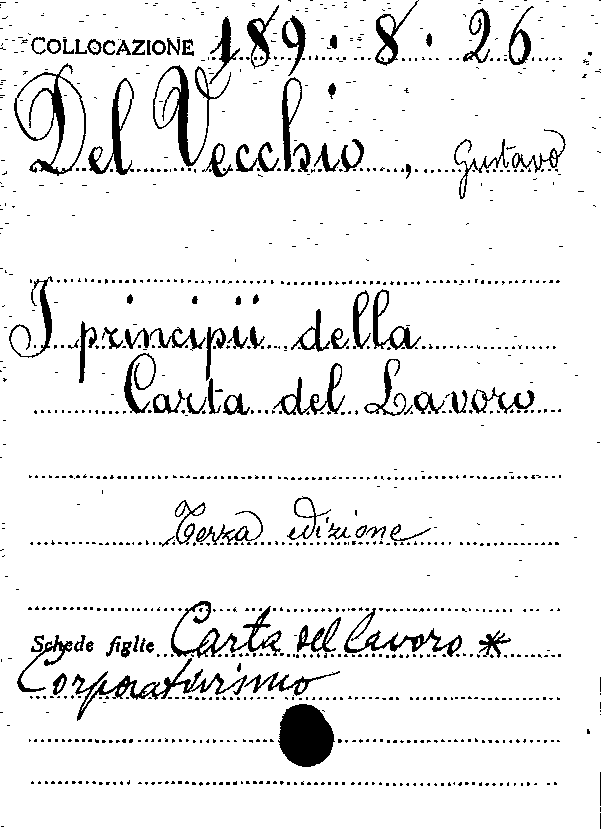 COLLOCAZIONE 189 · 8 · 26
Del Vecchio, Gustavo
I principii della
Carta del Lavoro
Terza edizione
Schede figlie Carta del lavoro *
Corporativismo